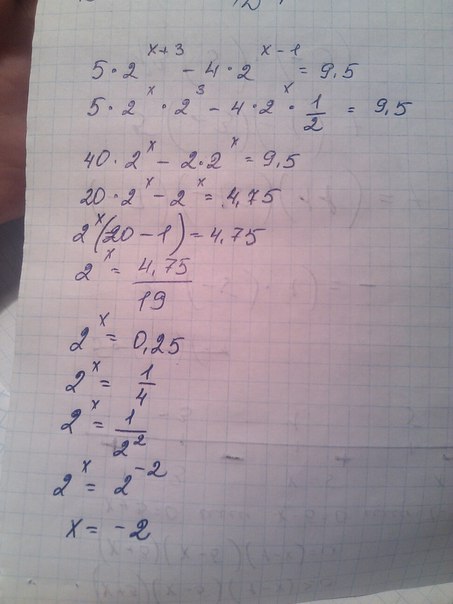 5 · 2^{x+3} - 4 · 2^{x-1} = 9,5
5 · 2^x · 2^3 - 4 · 2^x · \frac{1}{2} = 9,5
40 · 2^x - 2 · 2^x = 9,5
20 · 2^x - 2^x = 4,75
2^x (20 - 1) = 4,75
2^x = \frac{4,75}{19}
2^x = 0,25
2^x = \frac{1}{4}
2^x = \frac{1}{2^2}
2^x = 2^{-2}
x = -2